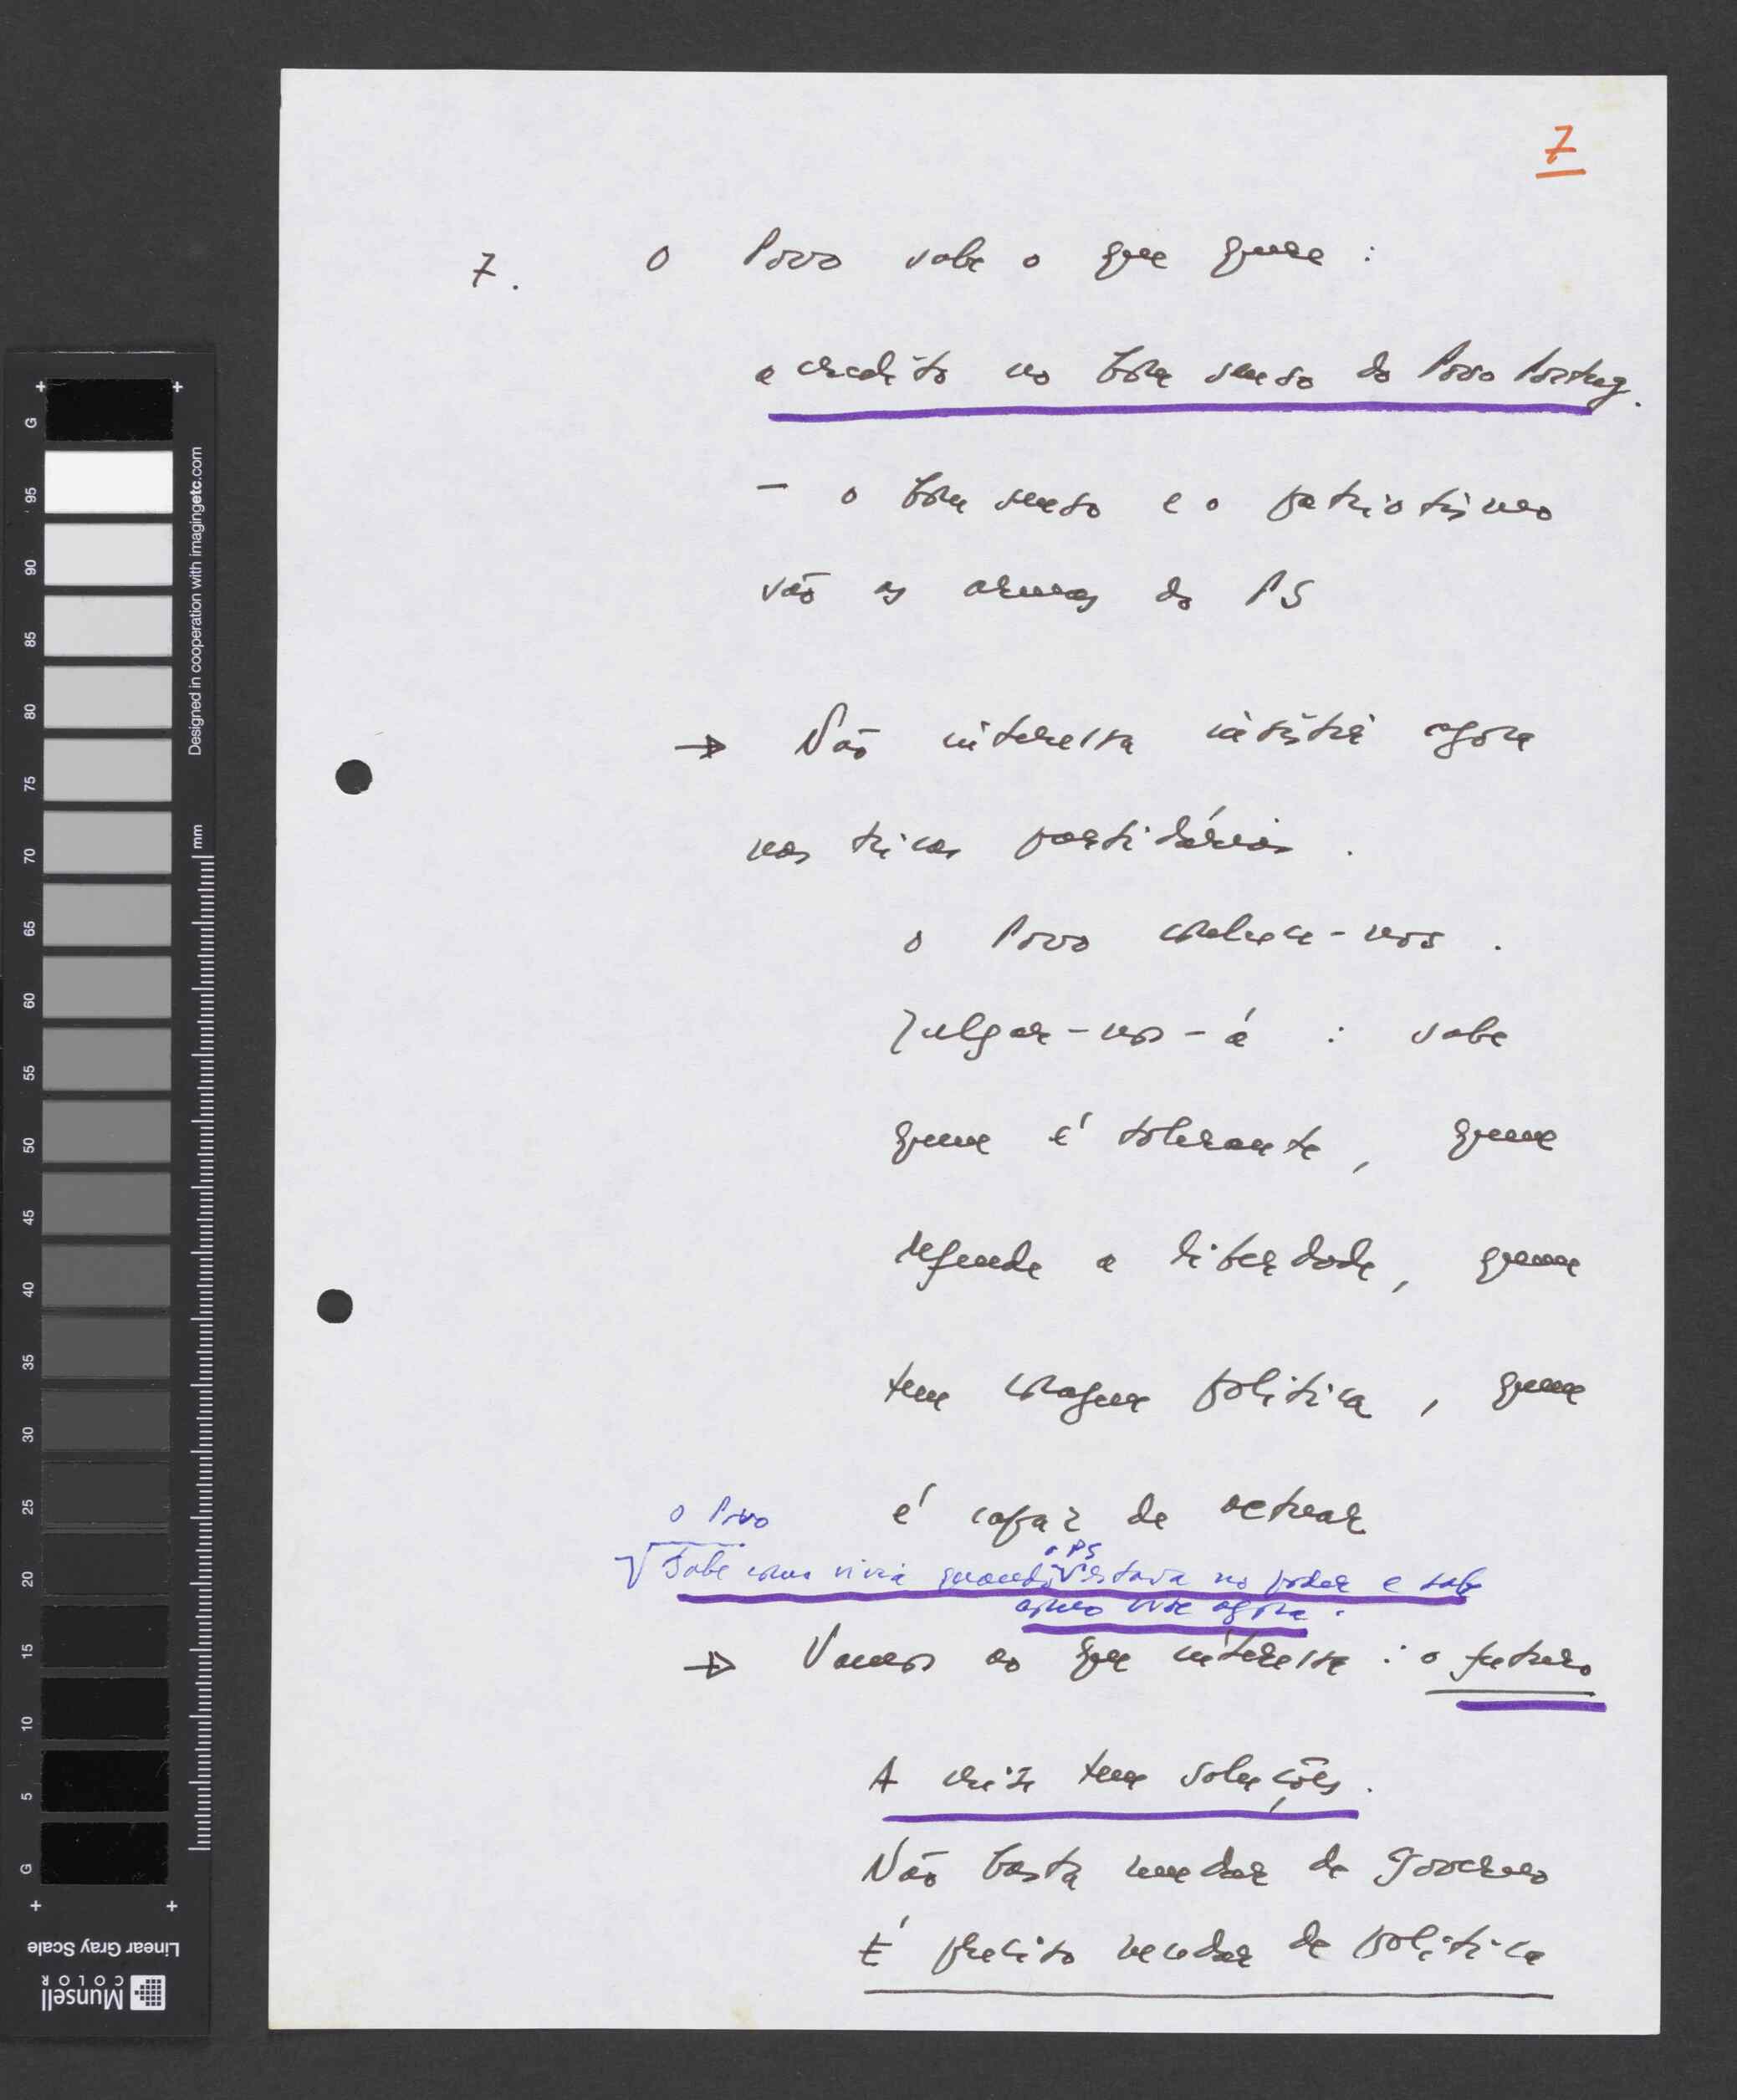 7
7. O Povo sabe o que quere :
acredito no bom senso do Povo Portug.
— o bom senso e o patriotismo
são as armas do PS
→ Não interessa insistir agora
nas tricas partidárias .
o Povo conhece-nos .
Julgar-nos-á : sabe
quem é tolerante , quem
defende a liberdade , quem
tem coragem política , quem
é capaz de actuar
o Povo
Sabe como vivia quando o PS estava no poder e sabe
como vive agora .
→ Vamos ao que interessa : o futuro
A crise tem soluções .
Não basta mudar de Governo
É preciso mudar de política
G 95 90 85 80 75 70 65 60 55 50 45 40 35 30 25 20 15 10 5 G
Designed in cooperation with imagingetc.com
mm
Linear Gray Scale
Munsell
COLOR